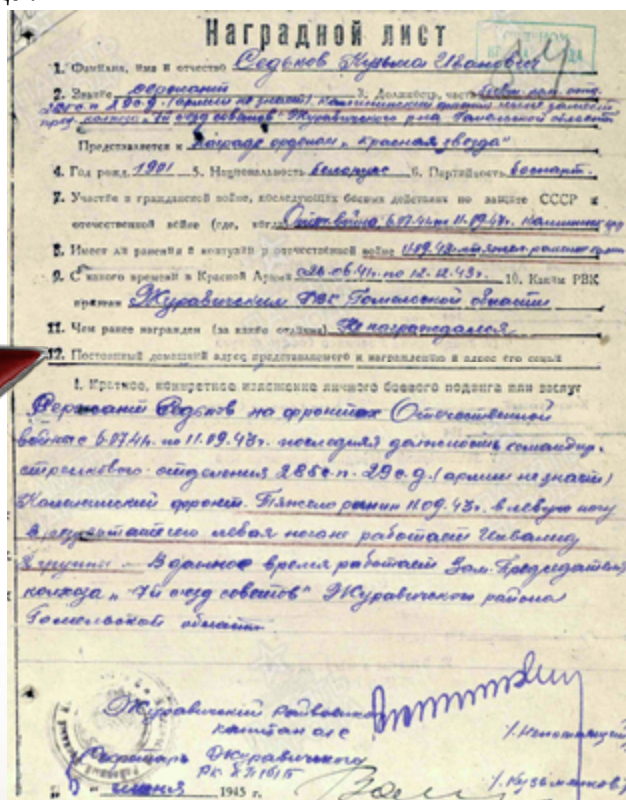 Наградной лист
1. Фамилия, имя и отчество Седьков Кузьма Иванович
2. Звание сержант 3. Должность, часть
колхоза „7й съезд советов" Журавичского р-на Гомельской области
Представляется к награде орденом „Красная звезда"
4. Год рожд. 1901 5. Национальность белорус 6. Партийность беспарт.
7. Участие в гражданской войне, последующих боевых действиях по защите СССР и
отечественной войне (где, когда)
8. Имеет ли ранения и контузии в отечественной войне
9. С какого времени в Красной Армии с 26.06.41г. по 12.12.43г. 10. Каким РВК
призван Журавичским РВК Гомельской области
11. Чем ранее награжден (за какие отличия) Не награждался
12. Постоянный домашний адрес представляемого к награждению и адрес его семьи
I. Краткое, конкретное изложение личного боевого подвига или заслуг
Сержант Седьков на фронтах Отечественной
войны с 6.07.41г. по 11.09.43г. последняя должность командир.
стрелкового отделения с.п. 29 с.д. (армии не знает)
Калининский фронт. Тяжело ранен 11.09.43г. в левую ногу
в результате его левая нога не работает Инвалид
группы – В данное время работает Зам. Председателя
колхоза „7й съезд советов" Журавичского района
Гомельской области
Журавичский Райвоенком
капитан а/с
Секретарь Журавичского
РК КП(б)Б
1945 г.
/Кузьменков/